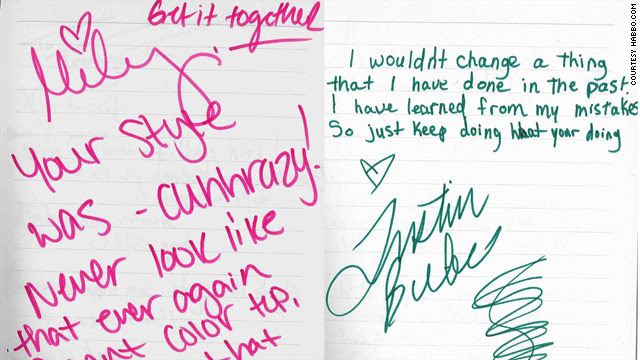 Get it together
Miley,
Your style
was - cuhhrazy!
Never look like
that ever again
color top,
that
I wouldn't change a thing
that I have done in the past.
I have learned from my mistakes
So just keep doing what your doing
Justin
Bieber
COURTESY HABBO.COM